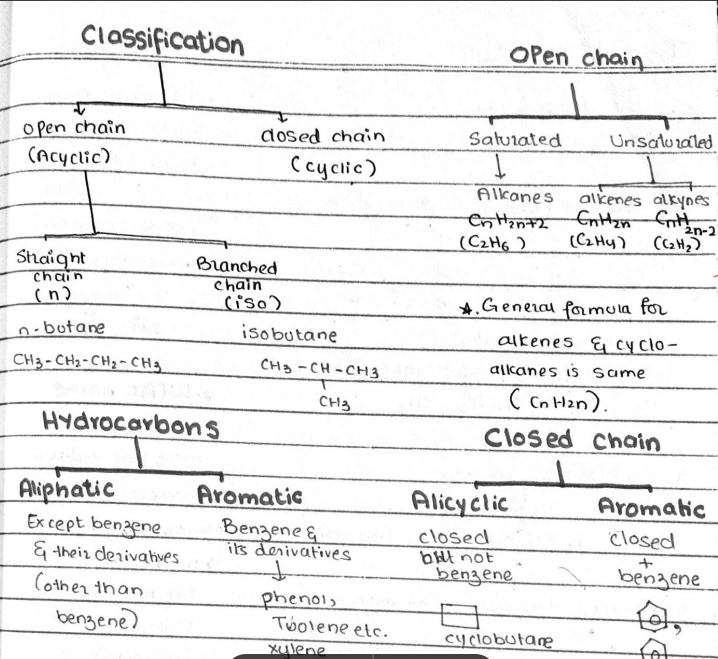 Classification
Open chain
(Acyclic)
closed chain
(cyclic)
Straight
chain
(n)
Branched
chain
(iso)
n-butane
isobutane
CH3-CH2-CH2-CH3
CH3-CH-CH3
CH3
Open chain
Saturated
Unsaturated
Alkanes
CnH2n+2
(C2H6)
alkenes
CnH2n
(C2H4)
alkynes
CnH2n-2
(C2H2)
★. General formula for
alkenes & cyclo-
alkanes is same
(CnH2n).
Hydrocarbons
Aliphatic
Except benzene
& their derivatives
(other than
benzene)
Aromatic
Benzene &
its derivatives
phenol,
Tuolene etc.
xylene
Closed chain
Alicyclic
closed
but not
benzene
cyclobutane
Aromatic
closed
+
benzene
,